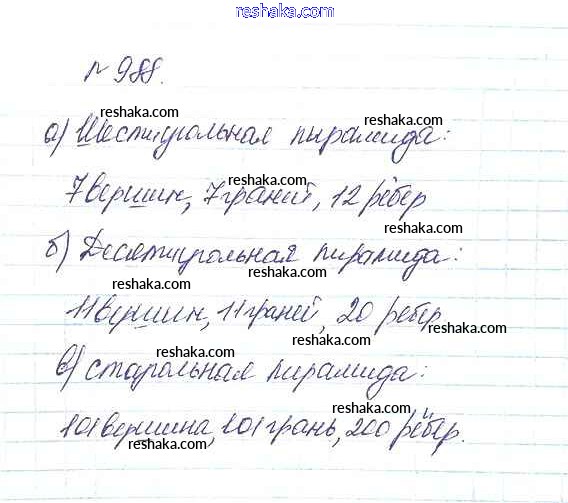 reshaka.com
№ 988.
reshaka.com
reshaka.com
а) Шестиугольная пирамида:
reshaka.com
reshaka.com
7 вершин, 7 граней, 12 рёбер
reshaka.com
б) Десятиугольная пирамида:
reshaka.com
reshaka.com
11 вершин, 11 граней, 20 рёбер
reshaka.com
reshaka.com
в) стоугольная пирамида:
reshaka.com
reshaka.com
101 вершина, 101 грань, 200 рёбер.
reshaka.com
reshaka.com